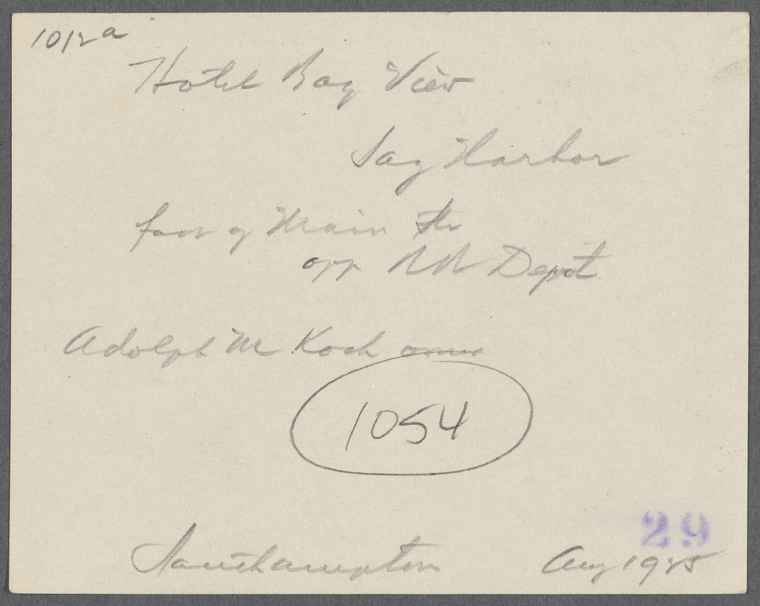 1012a
Hotel Bay View
Sag Harbor
foot of Main Str
opp RR Depot
Adolph M Koch owner
1054
29
Southampton Aug 1925